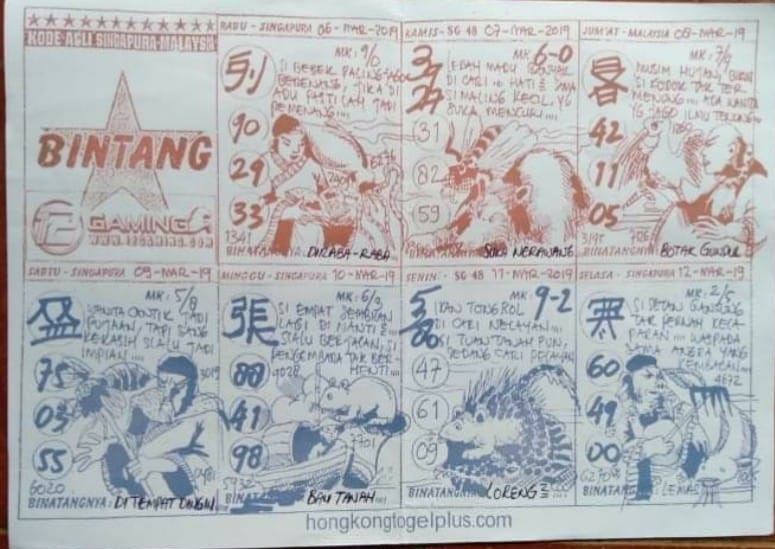 KODE ASLI SINGAPURA-MALAYSIA
BINTANG
GAMING
WWW.12GAMING.COM
RABU - SINGAPURA 06-MAR-2019
MK: 9/0
SI BEBEK PALING JAGO
BERENANG, JIKA DI
ADU PASTI LAH JADI
PEMENANG....
90
29
33
6276
1341
BINATANGNYA: DIRABA-RABA...
KAMIS - SG 48 07-MAR-2019
MK 6-0
DI CARI... HATI²
SI MALING KECIL, YG
SUKA MENCURI....
31
82
59
BINATANGNYA: SUKA NERAWANG
JUM'AT - MALAYSIA 08-MAR-19
MK: 7/9
MUSIM HUJAN,
SI KODOK TAK TER
MENUNG.... ADA WANITA
YG JAGO ILMU TENUNG...
42
11
05
BINATANGNYA: BOTAK GUNDUL
SABTU - SINGAPURA 09-MAR-19
MK: 5/8
盛
WANITA CANTIK JADI
PUJAAN, TAPI SANG
KEKASIH SLALU JADI
IMPIAN....
75
03
55
3019
6020
BINATANGNYA: DI TEMPAT DINGIN
MINGGU - SINGAPURA 10-MAR-19
MK: 6/3
張
SI EMPAT SERANGKAI
LAGI DI NANTI²
SLALU BERJALAN, SI
PENGEMBARA TAK BER-
HENTI....
9028
88
41
98
7701
5932
BINATANGNYA: BAU TANAH....
SENIN - SG 48 11-MAR-2019
MK 9-2
IKAN TONGKOL
DI CARI NELAYAN....
SI TUAN TANAH PUN,
SEDANG CARI PELAYAN
47
61
09
BINATANGNYA: LORENG²....
SELASA - SINGAPURA 12-MAR-19
MK: 2/5
SI SETAN GANTUNG
TAK PERNAH
WASPADA
SAMA ANGKA YANG
KEMBALAN....
4672
60
49
00
BINATANGNYA:
hongkongtogelplus.com